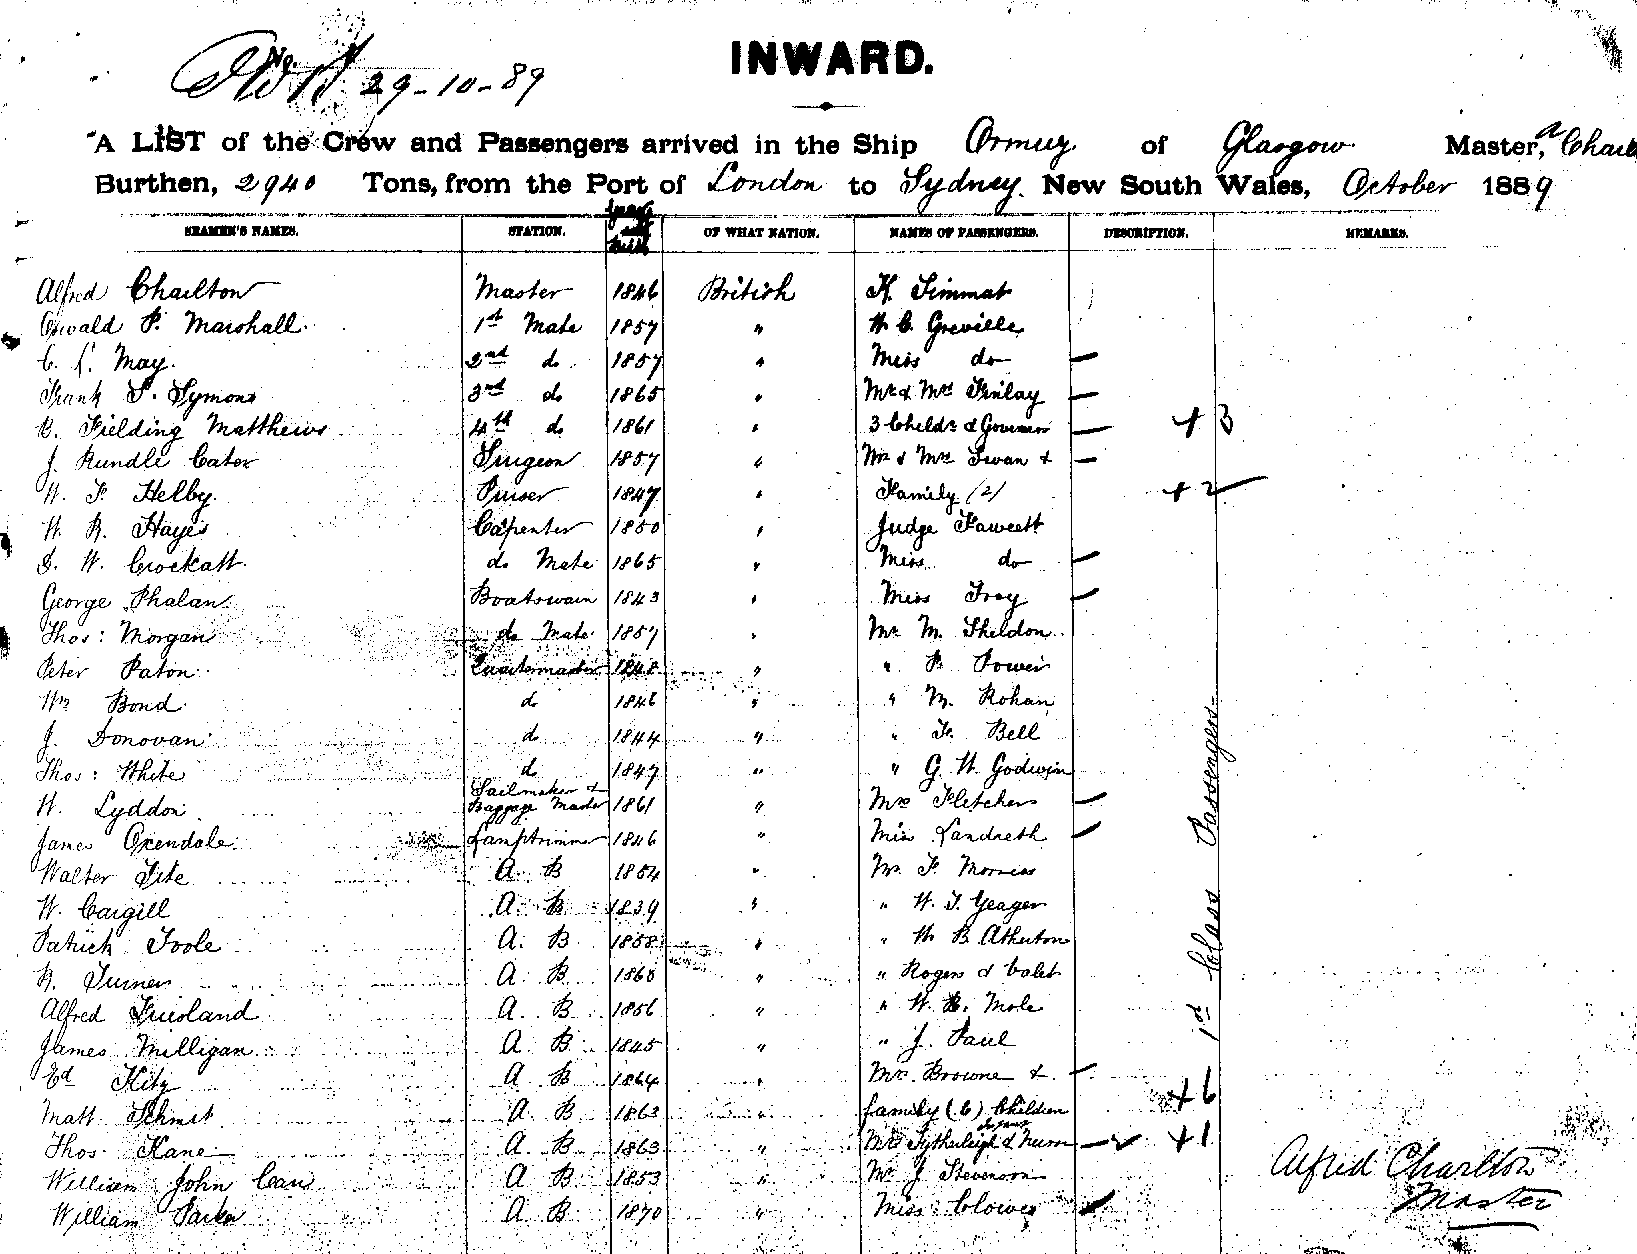 29-10-89
INWARD.
A LIST of the Crew and Passengers arrived in the Ship Ormuz of Glasgow Master, A Charl
Burthen, 2940 Tons, from the Port of London to Sydney New South Wales, October 1889
SEAMEN'S NAMES. STATION. OF WHAT NATION. NAMES OF PASSENGERS. DESCRIPTION. REMARKS.
Alfred Charlton Master 1846 British K. Simmat
Oswald P. Marshall 1st Mate 1857 " W. C. Greville
C. May. 2nd do 1857 " Miss do —
Frank S. Symons 3rd do 1865 " Mr & Mrs Finlay —
B. Fielding Matthews 4th do 1861 " 3 Childn & Governess — + 3
J. Rundle Cater Surgeon 1857 " Mr & Mrs Swan + —
W. F. Helby. Purser 1847 " Family (2) + 2
W. R. Hayes Carpenter 1850 " Judge Fawcett
W. Crockatt do Mate 1865 " Miss do —
George Phalan Boatswain 1843 " Miss Troy —
Thos: Morgan do Mate 1857 " Mr M. Sheldon
Peter Paton Quartermaster 1848 " " P. Power
Wm Bond do 1846 " " M. Rohan
J. Donovan do 1844 " " F. Bell
Thos: White do 1847 " " G. W. Godwin
W. Lyddon Sailmaker & Baggage Master 1861 " Mrs Fletcher —
James Oxendale Lamptrimmer 1846 " Miss Landreth —
Walter Tite A. B 1854 " Mr F. Morris
W. Cargill A. B 1839 " " W. T. Yeager
Patrick Toole A. B 1858 " " W. B. Atherton
R. Turner A. B 1860 " " Rogers & Valet
Alfred Friesland A. B 1856 " " W. Mole
James Milligan A. B 1845 " " J. Paul
Ed Kitz A. B 1864 " Mrs. Browne + —
Matt Schmit A. B 1863 " family (6) Children + 6
Thos. Kane A. B 1863 " Mrs Fytherleigh & Nurse — + 1
William John A. B 1853 " Mr J. Stevenson
William Parker A. B 1870 " Miss Clowes —
1st Class Passengers
Alfred Charlton
Master